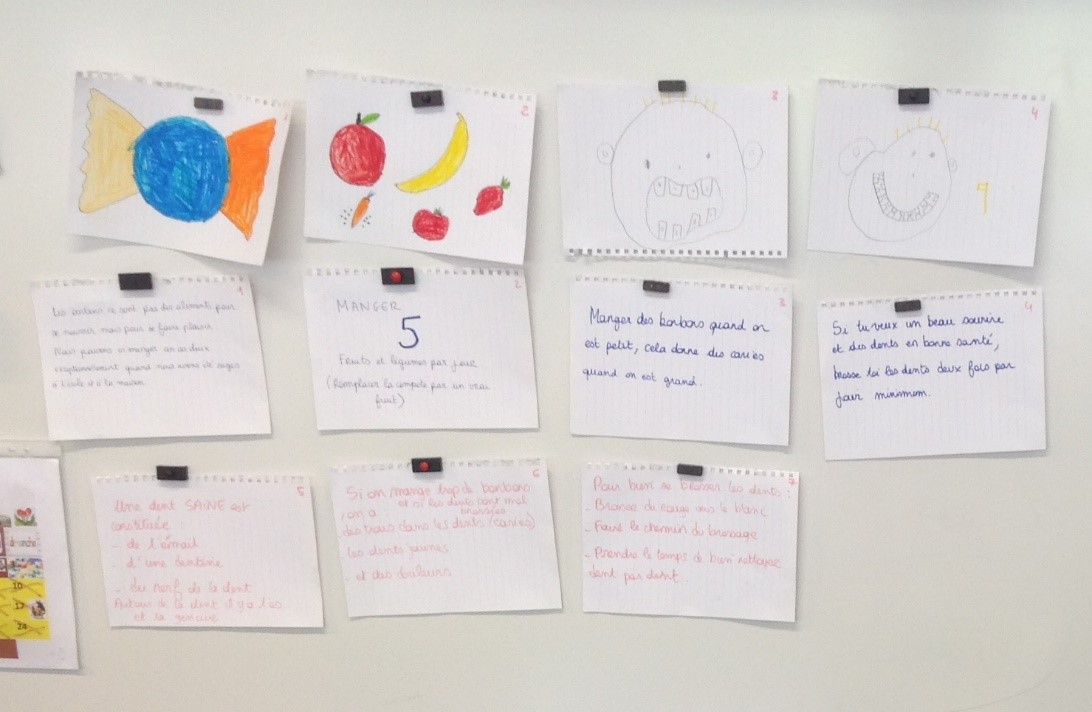 1
2
3
4
9
1
Les bonbons ne sont pas des aliments pour
se nourrir mais pour se faire plaisir.
Nous pouvons en manger un ou deux
quand nous avons été sages
à l'école et à la maison.
2
MANGER
5
Fruits et légumes par jour
(Remplacer la compote par un vrai
fruit)
3
Manger des bonbons quand on
est petit, cela donne des caries
quand on est grand.
4
Si tu veux un beau sourire
et des dents en bonne santé,
brosse toi les dents deux fois par
jour minimum.
5
Une dent SAINE est
constituée :
- de l'émail
- d'une dentine
- du nerf de la dent
Autour de la dent il y a l'os
et la gencive
6
Si on mange trop de bonbons
et si les dents sont mal
brossées
on a :
- des trous dans les dents (caries)
- les dents jaunes
- et des douleurs
7
Pour bien se brosser les dents :
- Brosser du rouge vers le blanc
- Faire le chemin du brossage
- Prendre le temps de bien nettoyer
dent par dent.
dimanche
10
17
24